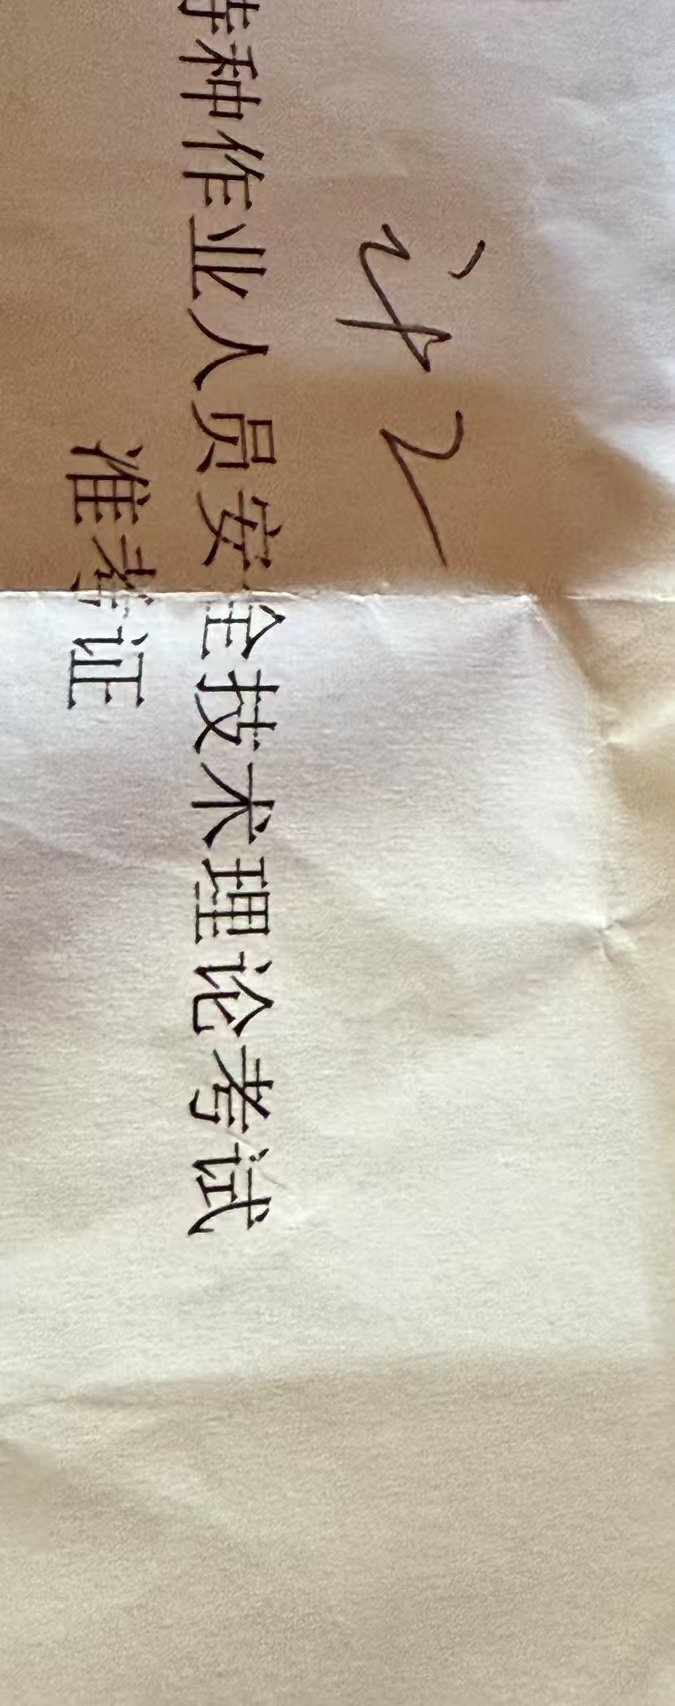 2
特种作业人员安全技术理论考试
准考证